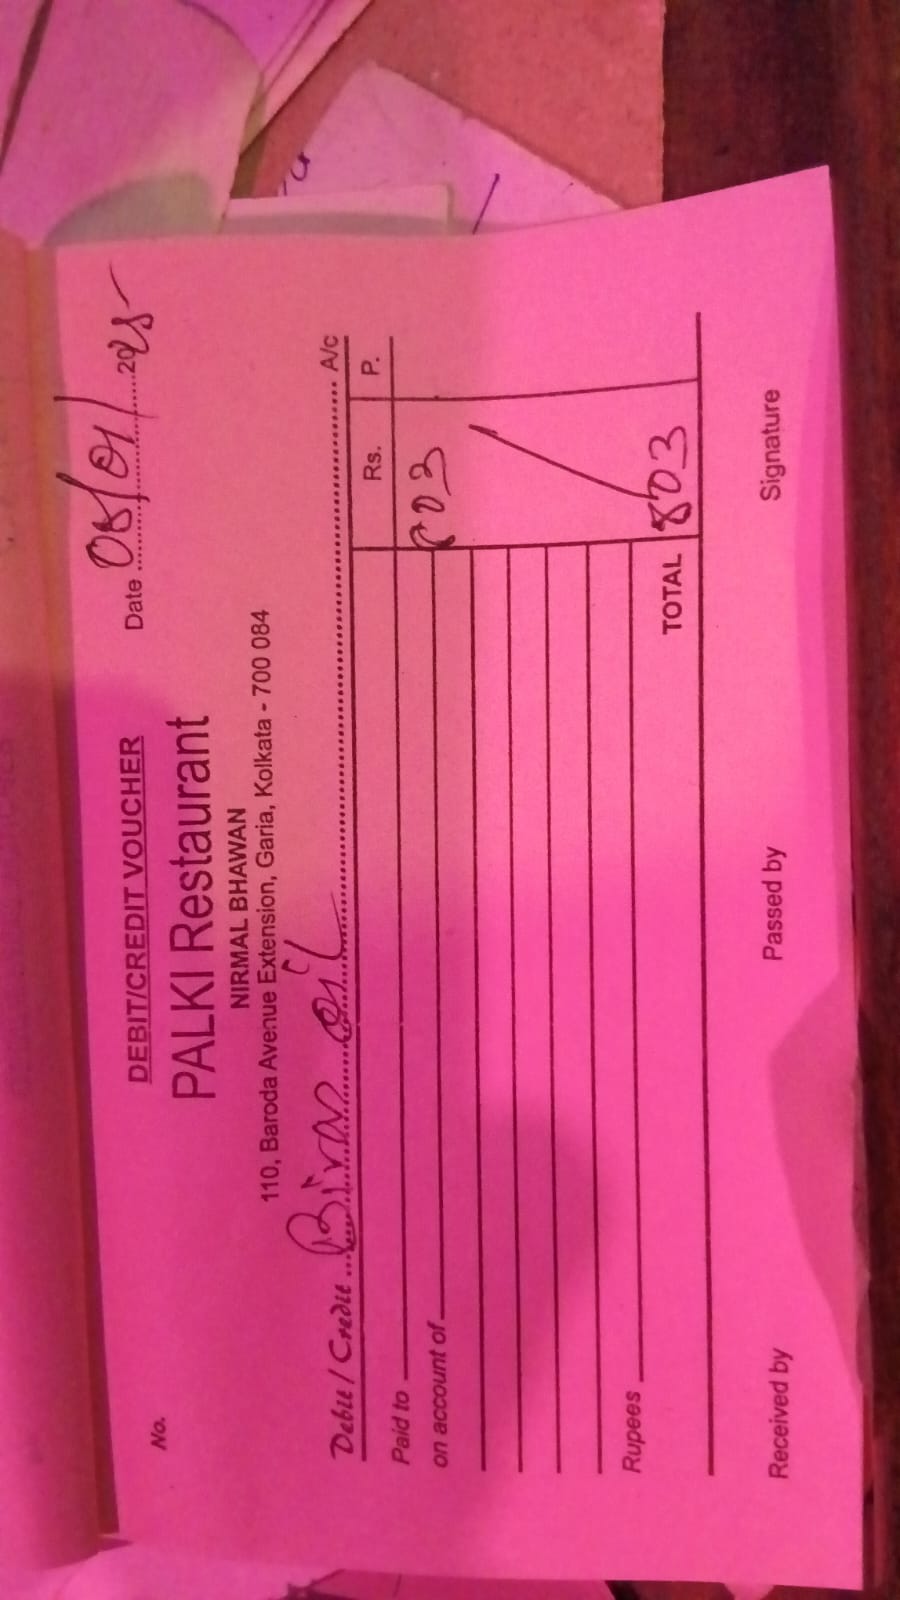 DEBIT/CREDIT VOUCHER
No.
Date 08/01/2025
PALKI Restaurant
NIRMAL BHAWAN
110, Baroda Avenue Extension, Garia, Kolkata - 700 084
Debit / Credit oil A/c
Rs. P.
Paid to
on account of 803
Rupees
TOTAL 803
Received by Passed by Signature